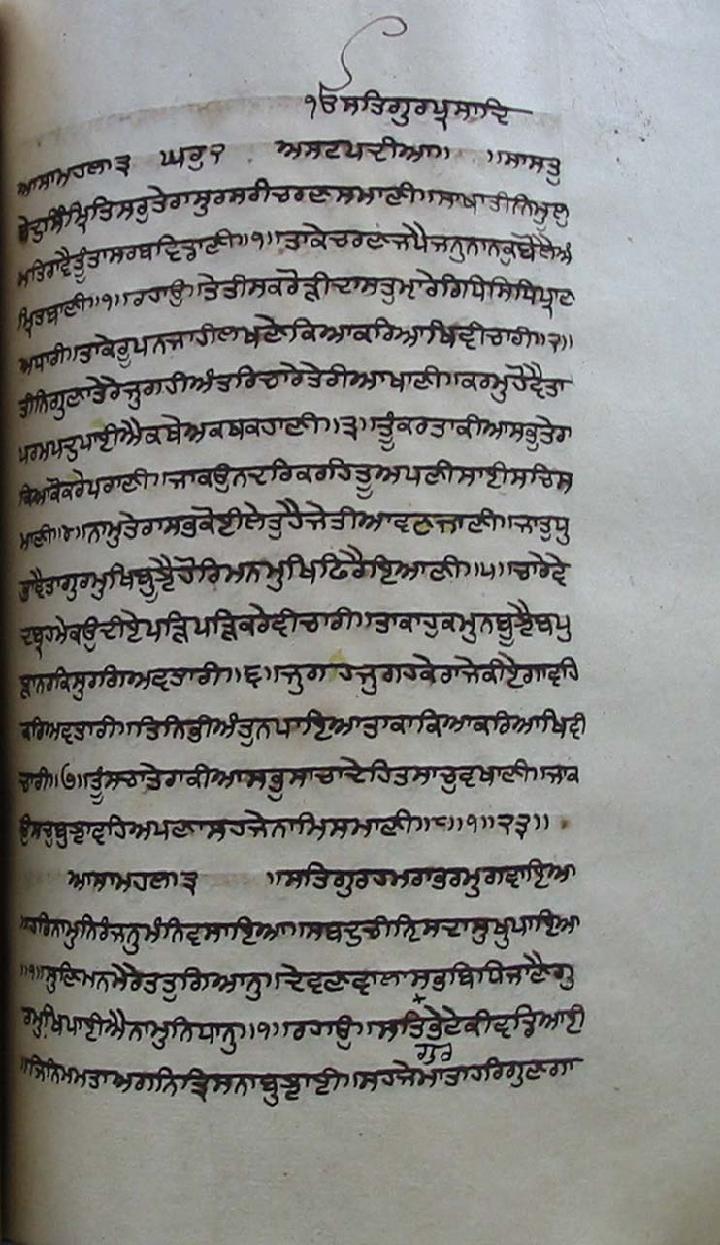 ੴਸਤਿਗੁਰਪ੍ਰਸਾਦਿ
ਆਸਾਮਹਲਾ੩ ਘਰੁ੨ ਅਸਟਪਦੀਆ॥ ॥ਸਾਸਤੁ
ਬੇਦੁਸਿੰਮ੍ਰਿਤਿਸਰੁਤੇਰਾਸੁਰਸਰੀਚਰਣਸਮਾਣੀ॥ਸਾਖਾਤੀਨਿਮੂਲੁ
ਮਤਿਰਾਵੈਤੂੰਤਾਸਰਬਵਿਡਾਣੀ॥੧॥ਤਾਕੇਚਰਣਜਪੈਜਨੁਨਾਨਕੁਬੋਲੇਅੰ
ਮ੍ਰਿਤਬਾਣੀ॥੧॥ਰਹਾਉ॥ਤੇਤੀਸਕਰੋੜੀਦਾਸਤੁਮ੍ਾਰੇਰਿਧਿਸਿਧਿਪ੍ਰਾਣ
ਅਧਾਰੀ॥ਤਾਕੇਰੂਪਨਜਾਹੀਲਖਣੇਕਿਆਕਰਿਆਖਿਵੀਚਾਰੀ॥੨॥
ਤੀਨਿਗੁਣਾਤੇਰੇਜੁਗਹੀਅੰਤਰਿਚਾਰੇਤੇਰੀਆਖਾਣੀ॥ਕਰਮੁਹੋਵੈਤਾ
ਪਰਮਪਦੁਪਾਈਐਕਥੇਅਕਥਕਹਾਣੀ॥੩॥ਤੂੰਕਰਤਾਕੀਆਸਭੁਤੇਰਾ
ਕਿਆਕੋਕਰੇਪਰਾਣੀ॥ਜਾਕਉਨਦਰਿਕਰਹਿਤੂਅਪਣੀਸਾਈਸਚਿਸ
ਮਾਣੀ॥੪॥ਨਾਮੁਤੇਰਾਸਭੁਕੋਈਲੇਤੁਹੈਜੇਤੀਆਵਣਜਾਣੀ॥ਜਾਤੁਧੁ
ਭਾਵੈਤਾਗੁਰਮੁਖਿਬੂਝੈਹੋਰਿਮਨਮੁਖਿਫਿਰੈਇਆਣੀ॥੫॥ਚਾਰੇਵੇ
ਦਬ੍ਰਹਮੇਕਉਦੀਏਪੜਿਪੜਿਕਰੇਵੀਚਾਰੀ॥ਤਾਕਾਹੁਕਮੁਨਬੂਝੈਬਪੁ
ੜਾਨਰਕਿਸੁਰਗਿਅਵਤਾਰੀ॥੬॥ਜੁਗਹਜੁਗਹਕੇਰਾਜੇਕੀਏਗਾਵਹਿ
ਕਰਿਅਵਤਾਰੀ॥ਤਿਨਿਭੀਅੰਤੁਨਪਾਇਆਤਾਕਾਕਿਆਕਰਿਆਖਿਵੀ
ਚਾਰੀ॥੭॥ਤੂੰਸਚਾਤੇਰਾਕੀਆਸਭੁਸਾਚਾਦੇਹਿਤਸਾਚੁਵਖਾਣੀ॥ਜਾਕ
ਉਸਚੁਬੁਝਾਵਹਿਅਪਣਾਸਹਜੇਨਾਮਿਸਮਾਣੀ॥੮॥੧॥੨੩॥
ਆਸਾਮਹਲਾ੩ ॥ਸਤਿਗੁਰਹਮਰਾਭਰਮੁਗਵਾਇਆ
ਹਰਿਨਾਮੁਨਿਰੰਜਨੁਮੰਨਿਵਸਾਇਆ॥ਸਬਦੁਚੀਨਿਸਦਾਸੁਖੁਪਾਇਆ
॥੧॥ਸੁਣਿਮਨਮੇਰੇਤਤੁਗਿਆਨੁ॥ਦੇਵਣਵਾਲਾਸਭਬਿਧਿਜਾਣੈਗੁ
ਰਮੁਖਿਪਾਈਐਨਾਮੁਨਿਧਾਨੁ॥੧॥ਰਹਾਉ॥ਸਤਿਭੇਟੇਕੀਵਡਿਆਈ
ਗੁਰ
॥ਜਿਨਿਮਮਤਾਅਗਨਿਤ੍ਰਿਸਨਾਬੁਝਾਈ॥ਸਹਜੇਮਾਤਾਹਰਿਗੁਣਗਾ